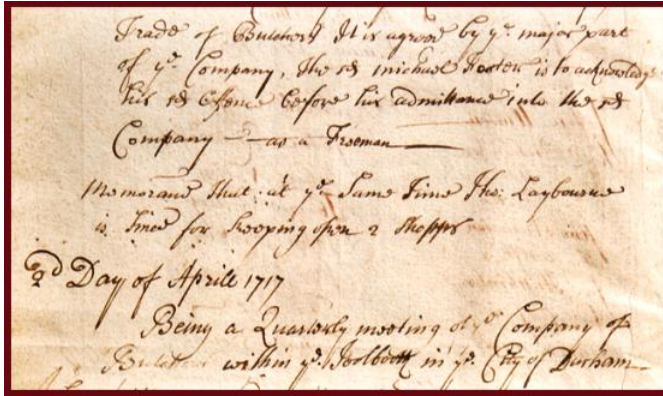 Trade of Butchers It is agreed by ye. major part
of ye. Company, The sd michael Foster is to acknowledge
his sd offence before his admittance into the sd
Company — as a Freeman —
Memorand That at ye. Same Time Tho: Laybourne
is fined for keeping open 2 Shopps
2d Day of Aprill 1717
Being a Quarterly meeting of ye. Company of
Butchers within ye. Tolbooth in ye. City of Durham